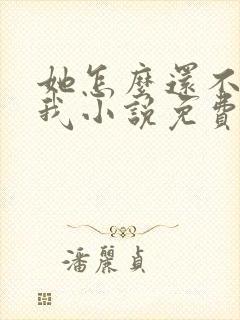 她怎麼還不
我小說免費
潘麗貞